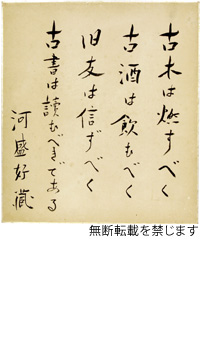 古木は燃すべく
古酒は飲むべく
旧友は信ずべく
古書は読むべきである
河盛好蔵
無断転載を禁じます